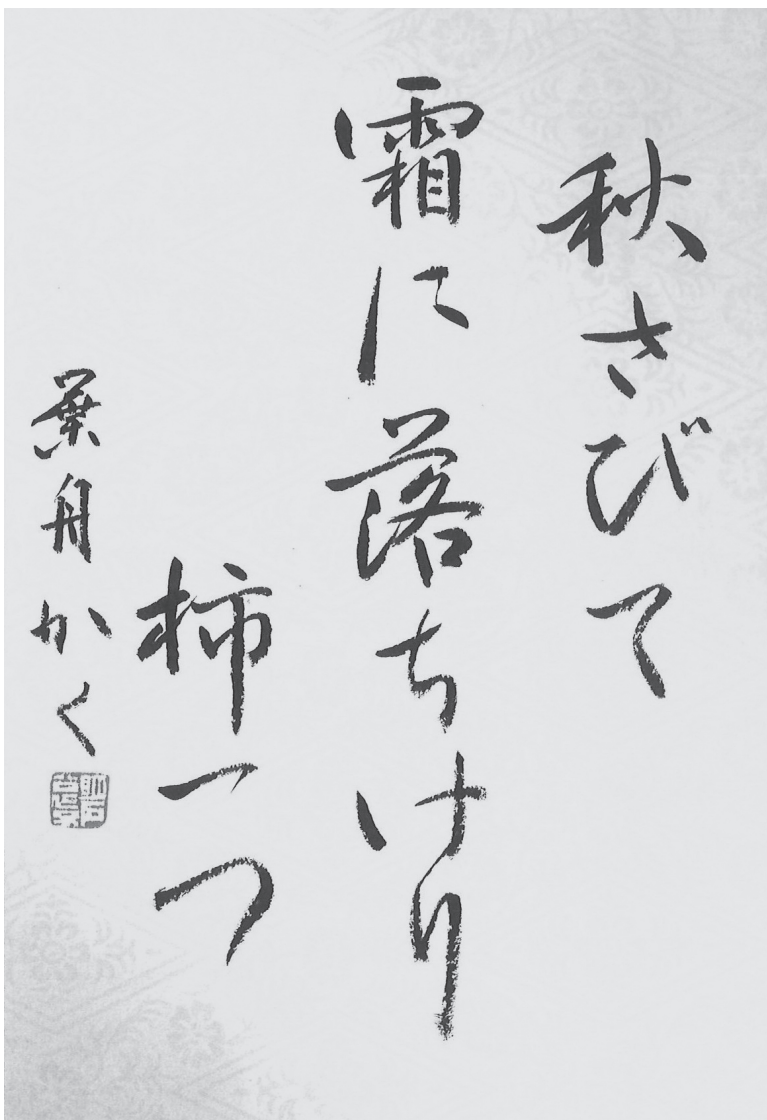 秋さびて
霜に落ちけり
柿一つ
葉舟かく